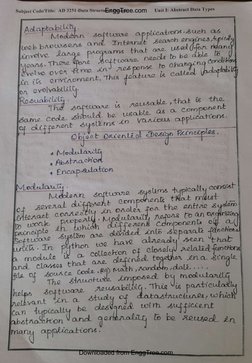 Subject Code/Title: AD 3251-Data Structures EnggTree.com Unit I: Abstract Data Types
Adaptability
Modern software applications.such as
web browsers and Internet search engines,typically
involve large programs that are used for many
years. There fore software needs to be able to
evolve over time in response to changing conditions
in its environment. This feature is called adaptability
or evolvability.
Reusability:
The software is reusable,that is the
same code should be usable as a component
of different systems in various applications.
Object Oriented Design Principles.
• Modularity
• Abstraction
• Encapsulation
Modularity
Modern software systems typically consist
of several different components that must
interact correctly in order for the entire system
to work properly. Modularity refers to an organizing
principle in which different components of a
software system are divided into separate functional
units. In python we have already seen that
a module is a collection of closely related functions
and classes that are defined together in a single
file of source code. eg: math, random,
The structure imposed by modularity
helps software reusability. This is particularly
relevant in a study of datastructures, which
can typically be designed with sufficient
abstraction and generality to be reused in
many applications.
Downloaded from EnggTree.com